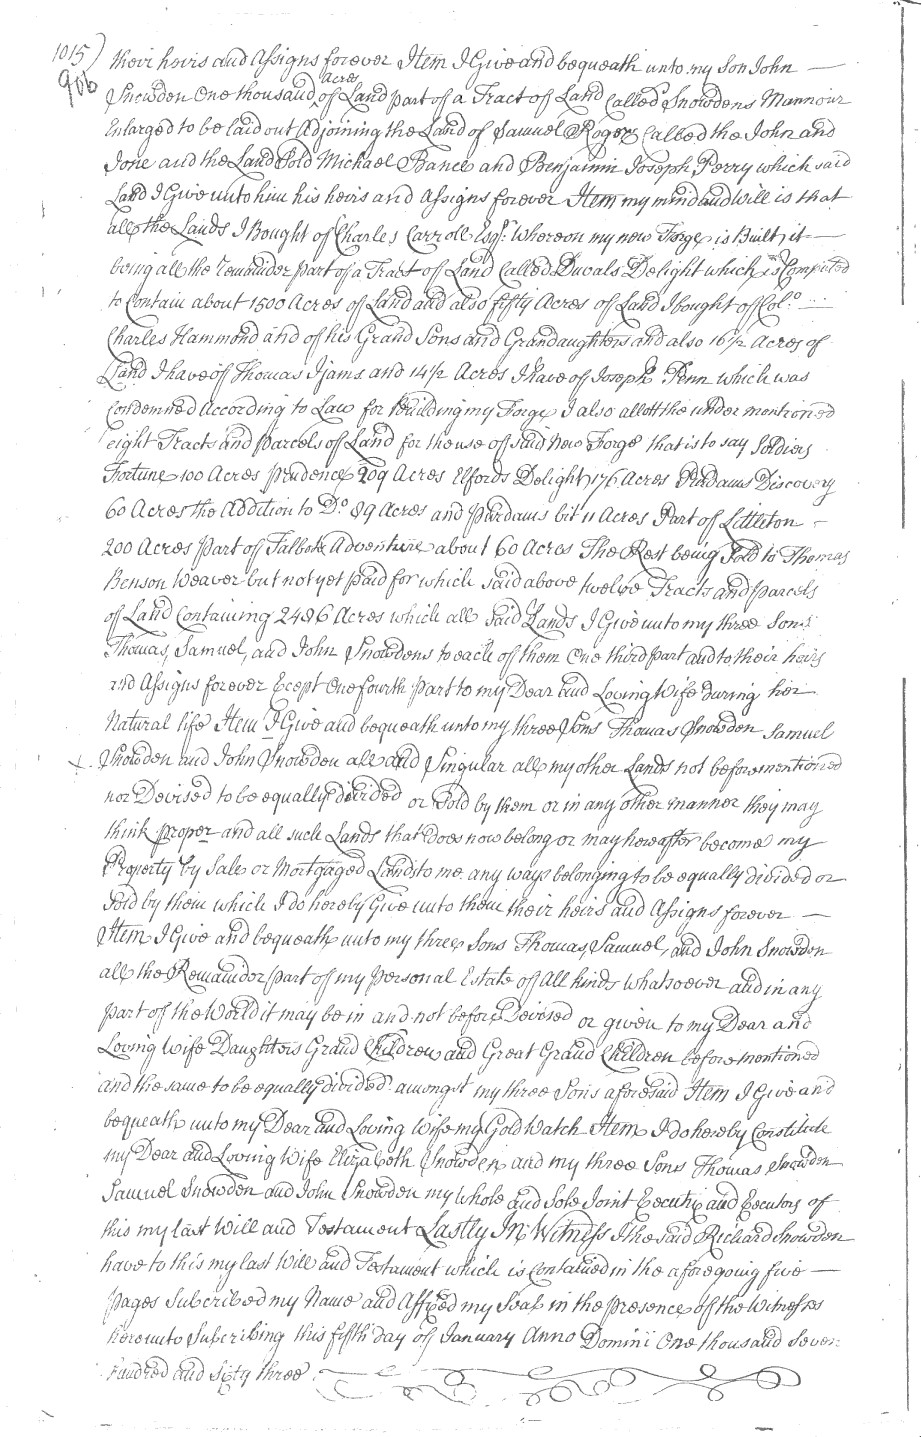 1015)
906
their heirs and Assigns forever Item I Give and bequeath unto my Son John
Snowden One thousand acres of Land part of a Tract of Land Called Snowdens Mannour
Enlarged to be laid out Adjoining the Land of Samuel Rogers Called the John and
Jone and the Land Sold Michael Bance and Benjamin Joseph Perry which said
Land I Give unto him his heirs and Assigns forever Item my mind and Will is that
all the Lands I Bought of Charles Carroll Esqr. Whereon my new Forge is Built it
being all the remainder part of a Tract of Land Called Duvals Delight which is Computed
to Contain about 1500 Acres of Land and also fifty Acres of Land I bought of Colo.
Charles Hammond and of his Grand Sons and Grandaughters and also 16 1/2 Acres of
Land I have off Thomas Ijams and 14 1/2 Acres I have of Joseph Penn which was
Condemned According to Law for Building my Forge I also allott the under mentioned
eight Tracts and parcels of Land for the use of said New Forge that is to say Soldiers
Fortune 100 Acres Prudence 209 Acres Elfords Delight 176 Acres Pindams Discovery
60 Acres the Addition to Do 89 Acres and Pardams bit 11 Acres Part of Littleton
200 Acres Part of Talbots Adventure about 60 Acres The Rest being Sold to Thomas
Benson Weaver but not yet paid for which said above twelve Tracts and parcels
of Land Containing 2486 Acres which all said Lands I Give unto my three Sons
Thomas, Samuel, and John Snowdens to each of them One third part and to their heirs
and Assigns forever Ecept One fourth Part to my Dear and Loving Wife during her
Natural life Item I Give and bequeath unto my three Sons Thomas Snowden Samuel
x Snowden and John Snowden all and Singular all my other Lands not before mentioned
nor Devised to be equally divided or Sold by them or in any other manner they may
think proper and all such Lands that does now belong or may hereafter become my
Property by Sale or Mortgaged Lands to me any ways belonging to be equally divided or
Sold by them which I do hereby Give unto them their heirs and Assigns forever
Item I Give and bequeath unto my three Sons Thomas, Samuel, and John Snowden
all the Remaindor part of my personal Estate of All kinds whatsoever and in any
part of the World it may be in and not before Devised or given to my Dear and
Loving Wife Daughters Grand Children and Great Grand Children before mentioned
and the same to be equally divided amongst my three Sons aforesaid Item I Give and
bequeath unto my Dear and Loving Wife my Gold Watch Item I do hereby Constitute
my Dear and Loving Wife Elizabeth Snowden and my three Sons Thomas Snowden
Samuel Snowden and John Snowden my Whole and Sole Joint Executrix and Executors of
this my last Will and Testament Lastly In Witness I the said Richard Snowden
have to this my last Will and Testament which is Contained in the aforegoing five
pages Subscribed my Name and Affixed my Seal in the presence of the Witnesses
hereunto Subscribing this fifth day of January Anno Domini One thousand Seven
hundred and Sixty three